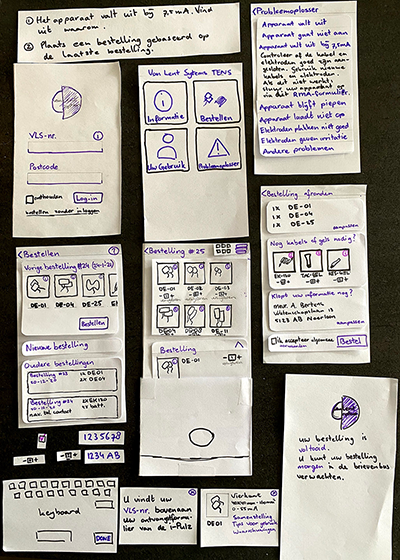 ① Het apparaat valt uit bij 7,5mA. Vind
uit waarom.
② Plaats een bestelling gebaseerd op
de laatste bestelling.
VLS-nr.
Postcode
onthouden
Log-in
bestellen zonder inloggen
Van Lent Systems TENS
Informatie
Bestellen
Uw Gebruik
Probleemoplosser
<Probleemoplosser
Apparaat valt uit
Apparaat gaat niet aan
Apparaat valt uit bij 7,5mA
Controleer of de kabel en
elektroden goed zijn aan-
gesloten. Gebruik nieuwe
kabels en elektroden.
Als dit niet werkt:
stuur uw apparaat op
via dit RMA-formulier.
Apparaat blijft piepen
Apparaat laadt niet op
Elektroden plakken niet goed
Elektroden geven irritatie
Andere problemen
<Bestellen
Vorige bestelling #24
DE-01 DE-04 DE-25
Bestellen
Nieuwe bestelling
Oudere bestellingen
1x DE01
2x DE04
2x batt.
<Bestelling #25
DE-01
DE-11
Bestelling
DE-01
-1+
<Bestelling afronden
1x DE-01
1x DE-04
1x DE-25
aanpassen
Nog kabels of gels nodig?
Klopt uw informatie nog?
mevr. A. Bertens
5123 AB Naarloon
aanpassen
Ik accepteer algemene
Bestel
1235678
1234 AB
keyboard
DONE
U vindt uw
VLS-nr. bovenaan
uw ontvangstformu-
lier van de i-Pulz
Vierkant
DE01
Samenstelling
Tips voor gebruik
Waarschuwingen
Uw bestelling is
voltooid.
U kunt uw bestelling
morgen in de brievenbus
verwachten.